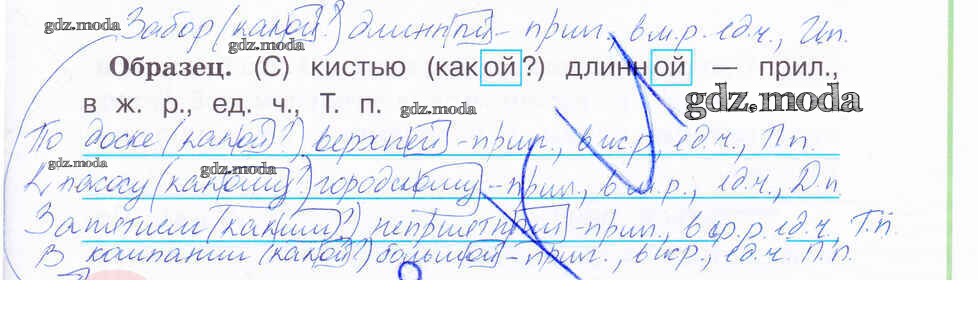 Забор (какой?) длинный - прил., в м.р. ед.ч., И.п.
Образец. (С) кистью (какой?) длинной — прил.,
в ж. р., ед. ч., Т. п.
По доске (какой?) верхней - прил., в ж.р., ед.ч., П.п.
К (какому?) городскому - прил., в м.р., ед.ч., Д.п.
За (каким?) неприятным - прил., в ср.р. ед.ч., Т.п.
В компании (какой?) большой - прил., в ж.р., ед.ч. П.п.
gdz.moda
gdz.moda
gdz.moda
gdz.moda
gdz.moda
gdz.moda
gdz.moda